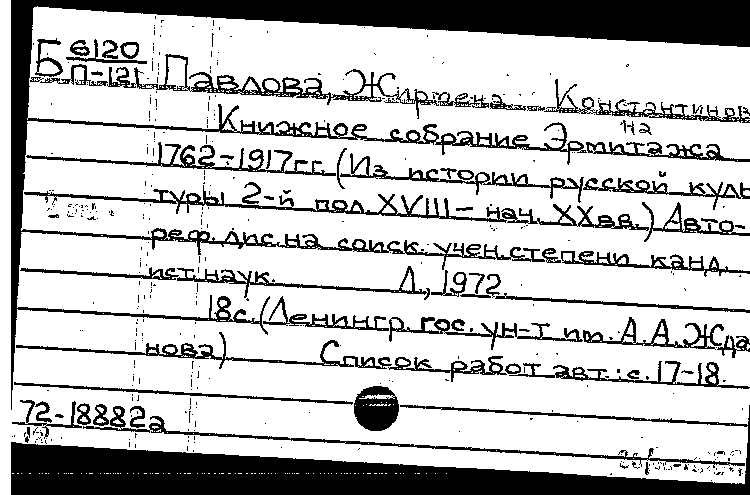 Б 6120
П-121 Павлова, Жирмена Константинов
на
Книжное собрание Эрмитажа
1762-1917гг. (Из истории русской куль
туры 2-й пол. XVIII - нач. XXвв.) Авто-
реф. дис. на соиск. учен. степени канд.
ист. наук. Л., 1972.
18с. (Ленингр. гос. ун-т им. А.А. Жда
нова) Список работ авт.: с. 17-18.
72-18882а